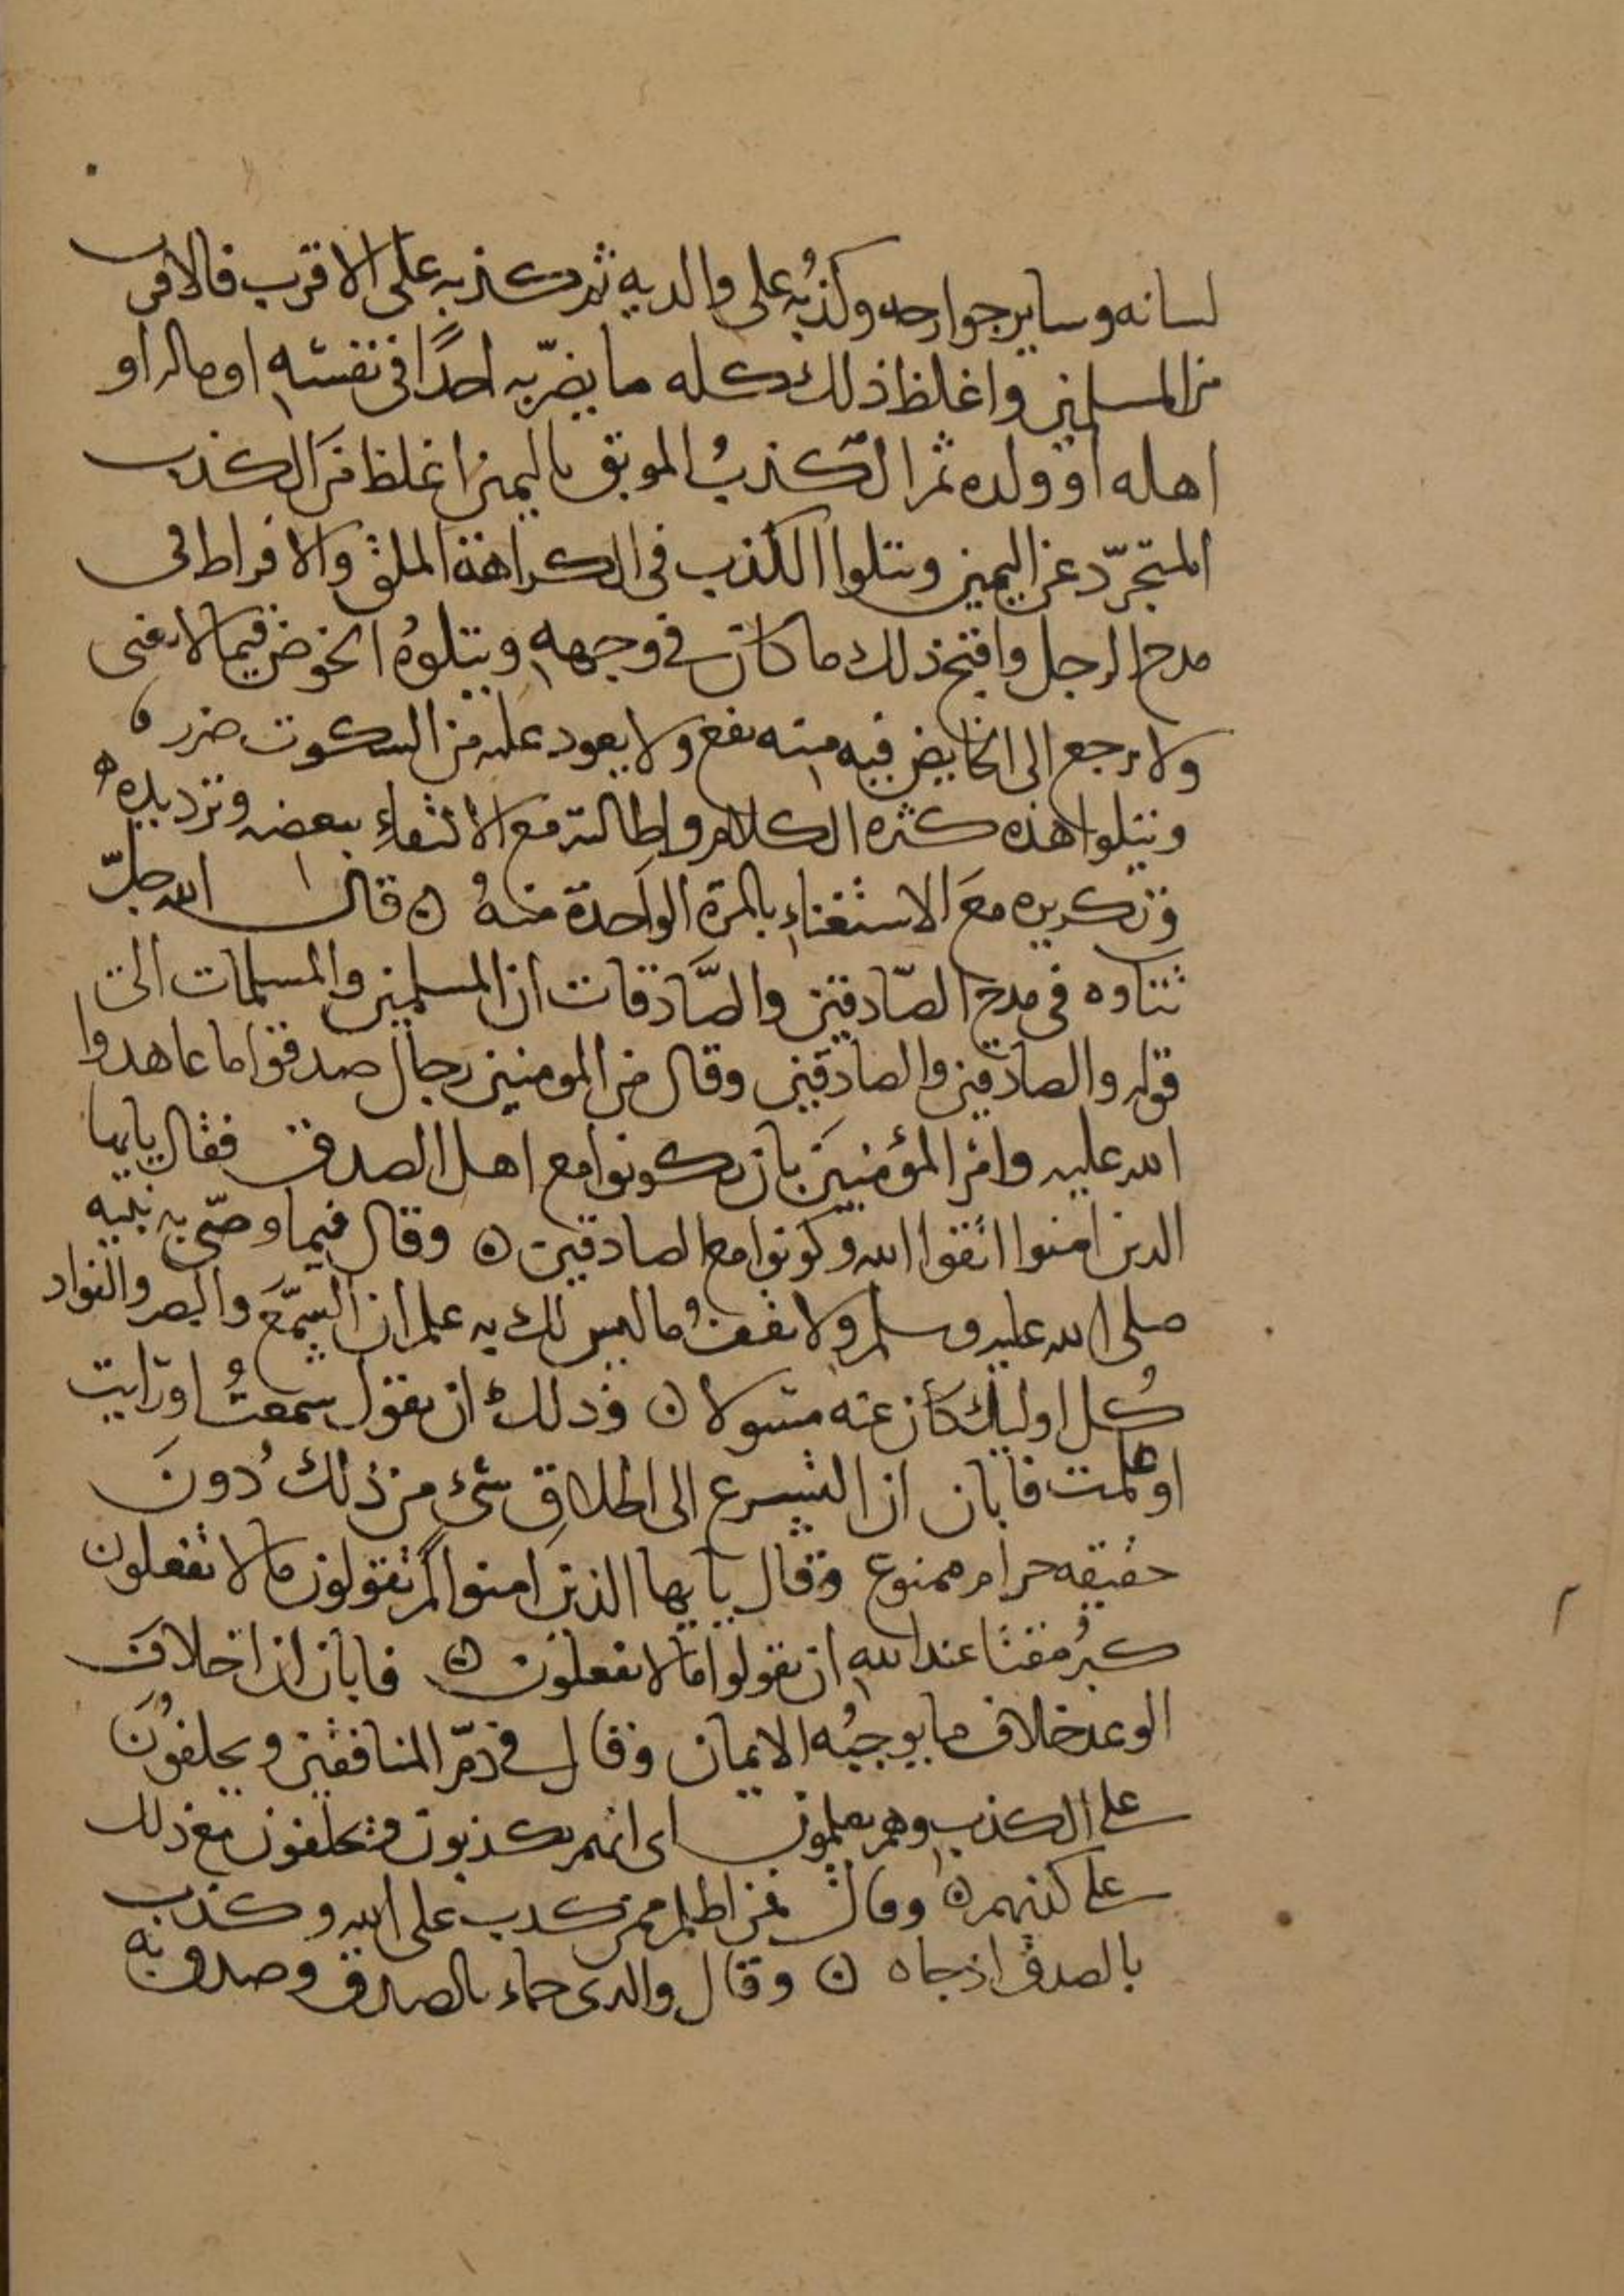 لسانه وساير جوارحه وكذبُه على والديه ثم كذبه على الاقرب فالاقرب
من المسلمين واغلظ ذلك كله ما يضرّ به احدًا في نفسه او ماله او
اهله او ولده ثم الكذبُ الموثق باليمين اغلظ من الكذب
المتجرّد عن اليمين ويتلوا الكذب في الكراهة الملق والافراط في
مدح الرجل واقبح ذلك ما كان في وجهه ويتلوهُ الخوض فيما لا يغنى
ولا يرجع الى الخايض فيه منه نفع ولا يعود عليه من السكوت ضرر
ويتلوا هذه كثره الكلام واطالته مع الاكتفاء ببعضه وترديده
وتكريره معَ الاستغناءِ بالمرة الواَحدة منهُ ن قال الله جلّ
ثناوه في مدح الصّادقين والصَّادقات ان المسلمين والمسلمات الى
قوله والصادقين والصادقين وقال من المومنين رجال صدقوا ما عاهدوا
الله عليه وامر المؤمنينَ بان يكونوا مع اهل الصدق فقال يايها
الدين امنوا اتقوا الله وكونوا مع الصادقين ن وقال فيما وصّى به نبيه
صلى الله عليه وسلم ولا تقفُ ما ليس لك به علم ان السّمعَ والبصر والفواد
كُل اوليك كان عنه مسولا ن وذلك ان يقول سمعتُ او رَايت
او علمت فابان ان التسرع الى اطلاقِ شىء من ذلك دونَ
حقيقه حرام ممنوع وقال يايها الذين امنوا لم تقولون ما لا تفعلون
كبُر مقتًا عند اللهِ ان تقولوا ما لا تفعلون ن فابان ان اخلاف
الوعد خلاف ما يوجبُه الايمان وقال في ذمّ المنافقين ويحلفوُنَ
على الكذب وهم يعلمون اى انهم يكذبون ويحلفون مع ذلك
على كذبهم ن وقال فمن اظلم ممن كذب على الله وكذب
بالصدق اذ جاه ن وقال والدى جاء بالصدق وصدق به